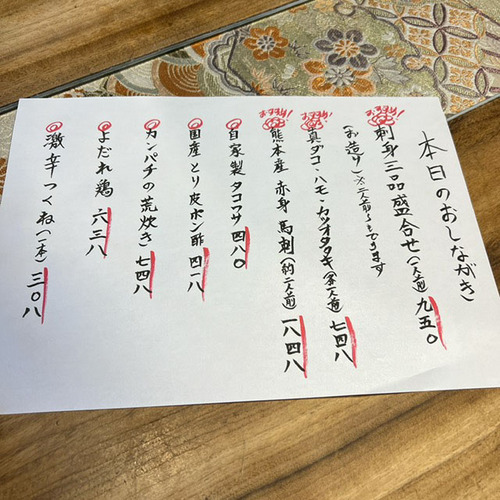 本日のおしながき
おすすめ!
刺身三品盛合せ(一人前)九五〇
(お造り)※二人前〜もできます
おすすめ!
真ダコ・ハモ・カツオタタキ(各一人前)七四八
おすすめ!
熊本産 赤身 馬刺(約二人前)一八四八
自家製タコワサ 四八〇
国産とり皮ポン酢 四一八
カンパチの荒炊き 七四八
よだれ鶏 六三八
激辛つくね(一本)三〇八